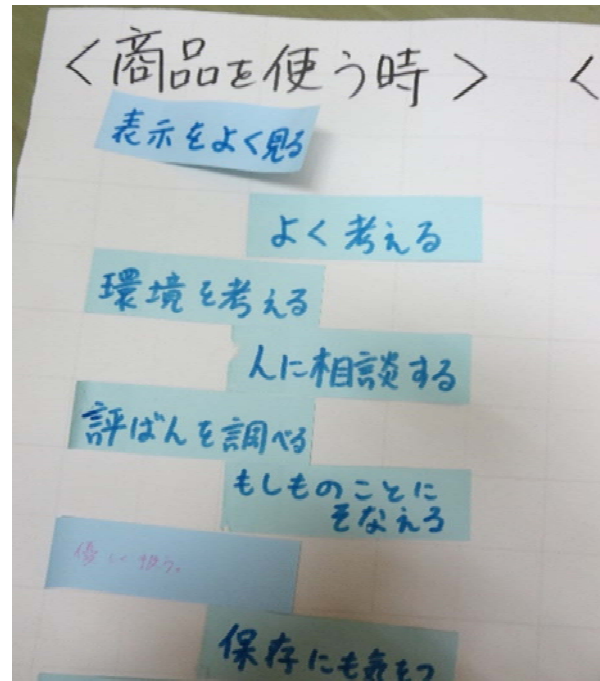 ＜商品を使う時＞ ＜
表示をよく見る
よく考える
環境を考える
人に相談する
評ばんを調べる
もしものことに
そなえる
保存にも気をつ